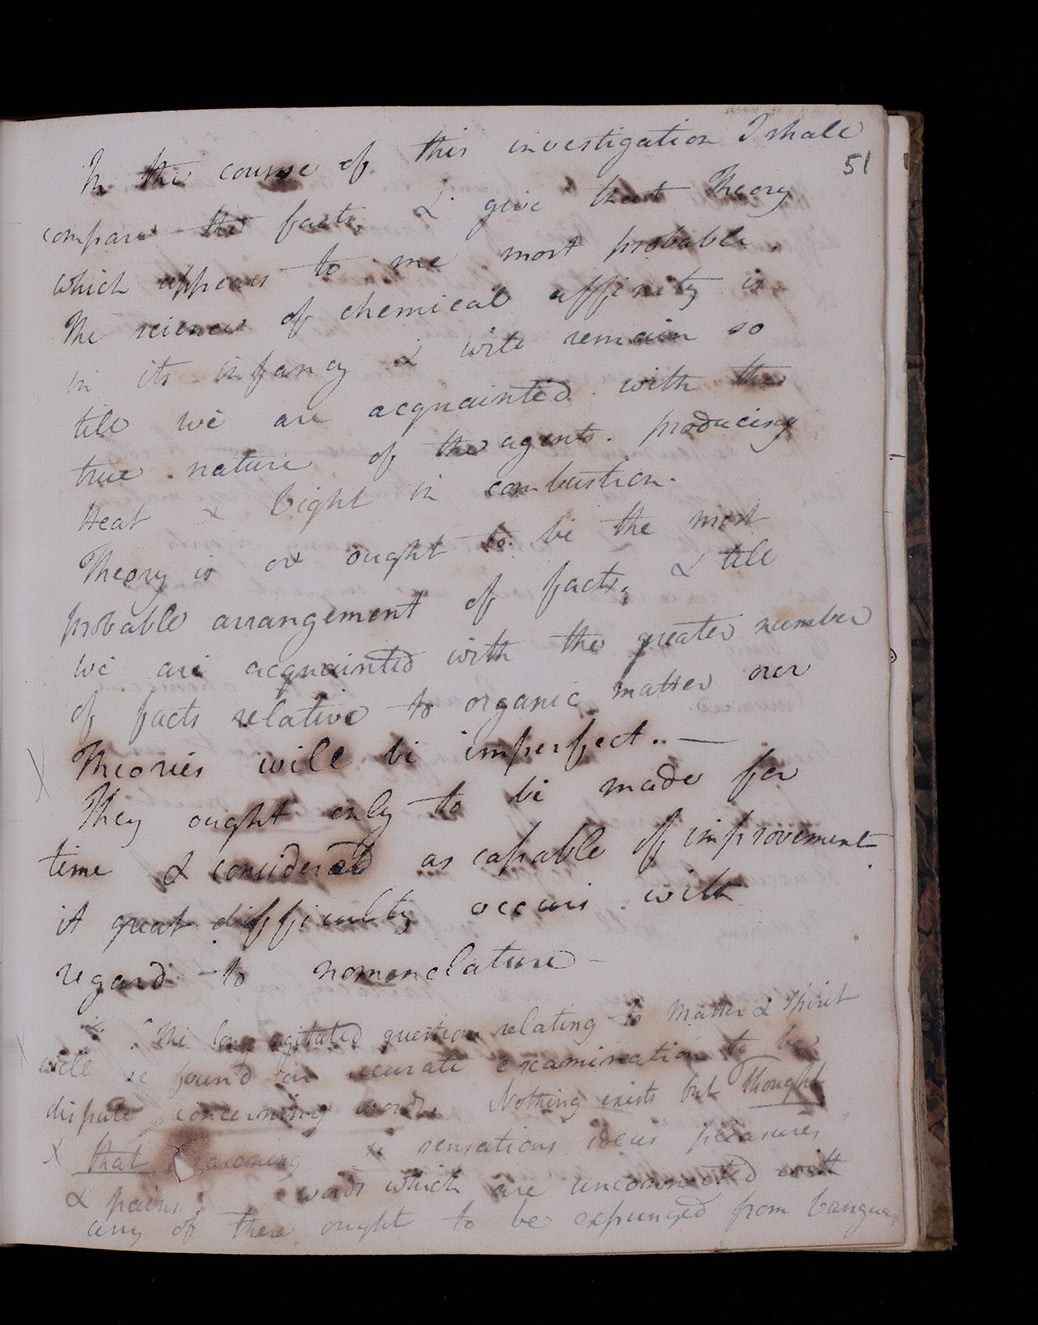 In the course of this investigation I shall
51
compare the facts & give that Theory
which appears to me most probable.
The science of chemical affinity is
in its infancy & will remain so
till we are acquainted with the
true nature of the agents. producing
Heat & Light in combustion.
Theory is or ought to be the most
probable arrangement of facts, & till
we are acquainted with the greater number
of facts relative to organic matter our
Theories will be imperfect. —
They ought only to be made for
time & considered as capable of improvement.
A great difficulty occurs with
regard to nomenclature —
The long agitated question relating to Matter & Spirit
will be found on accurate examination to be
dispute concerning words. Nothing exists but thought
X that reasoning sensations ideas pleasures
& pains; words which are unconnected with
any of these ought to be expunged from Language